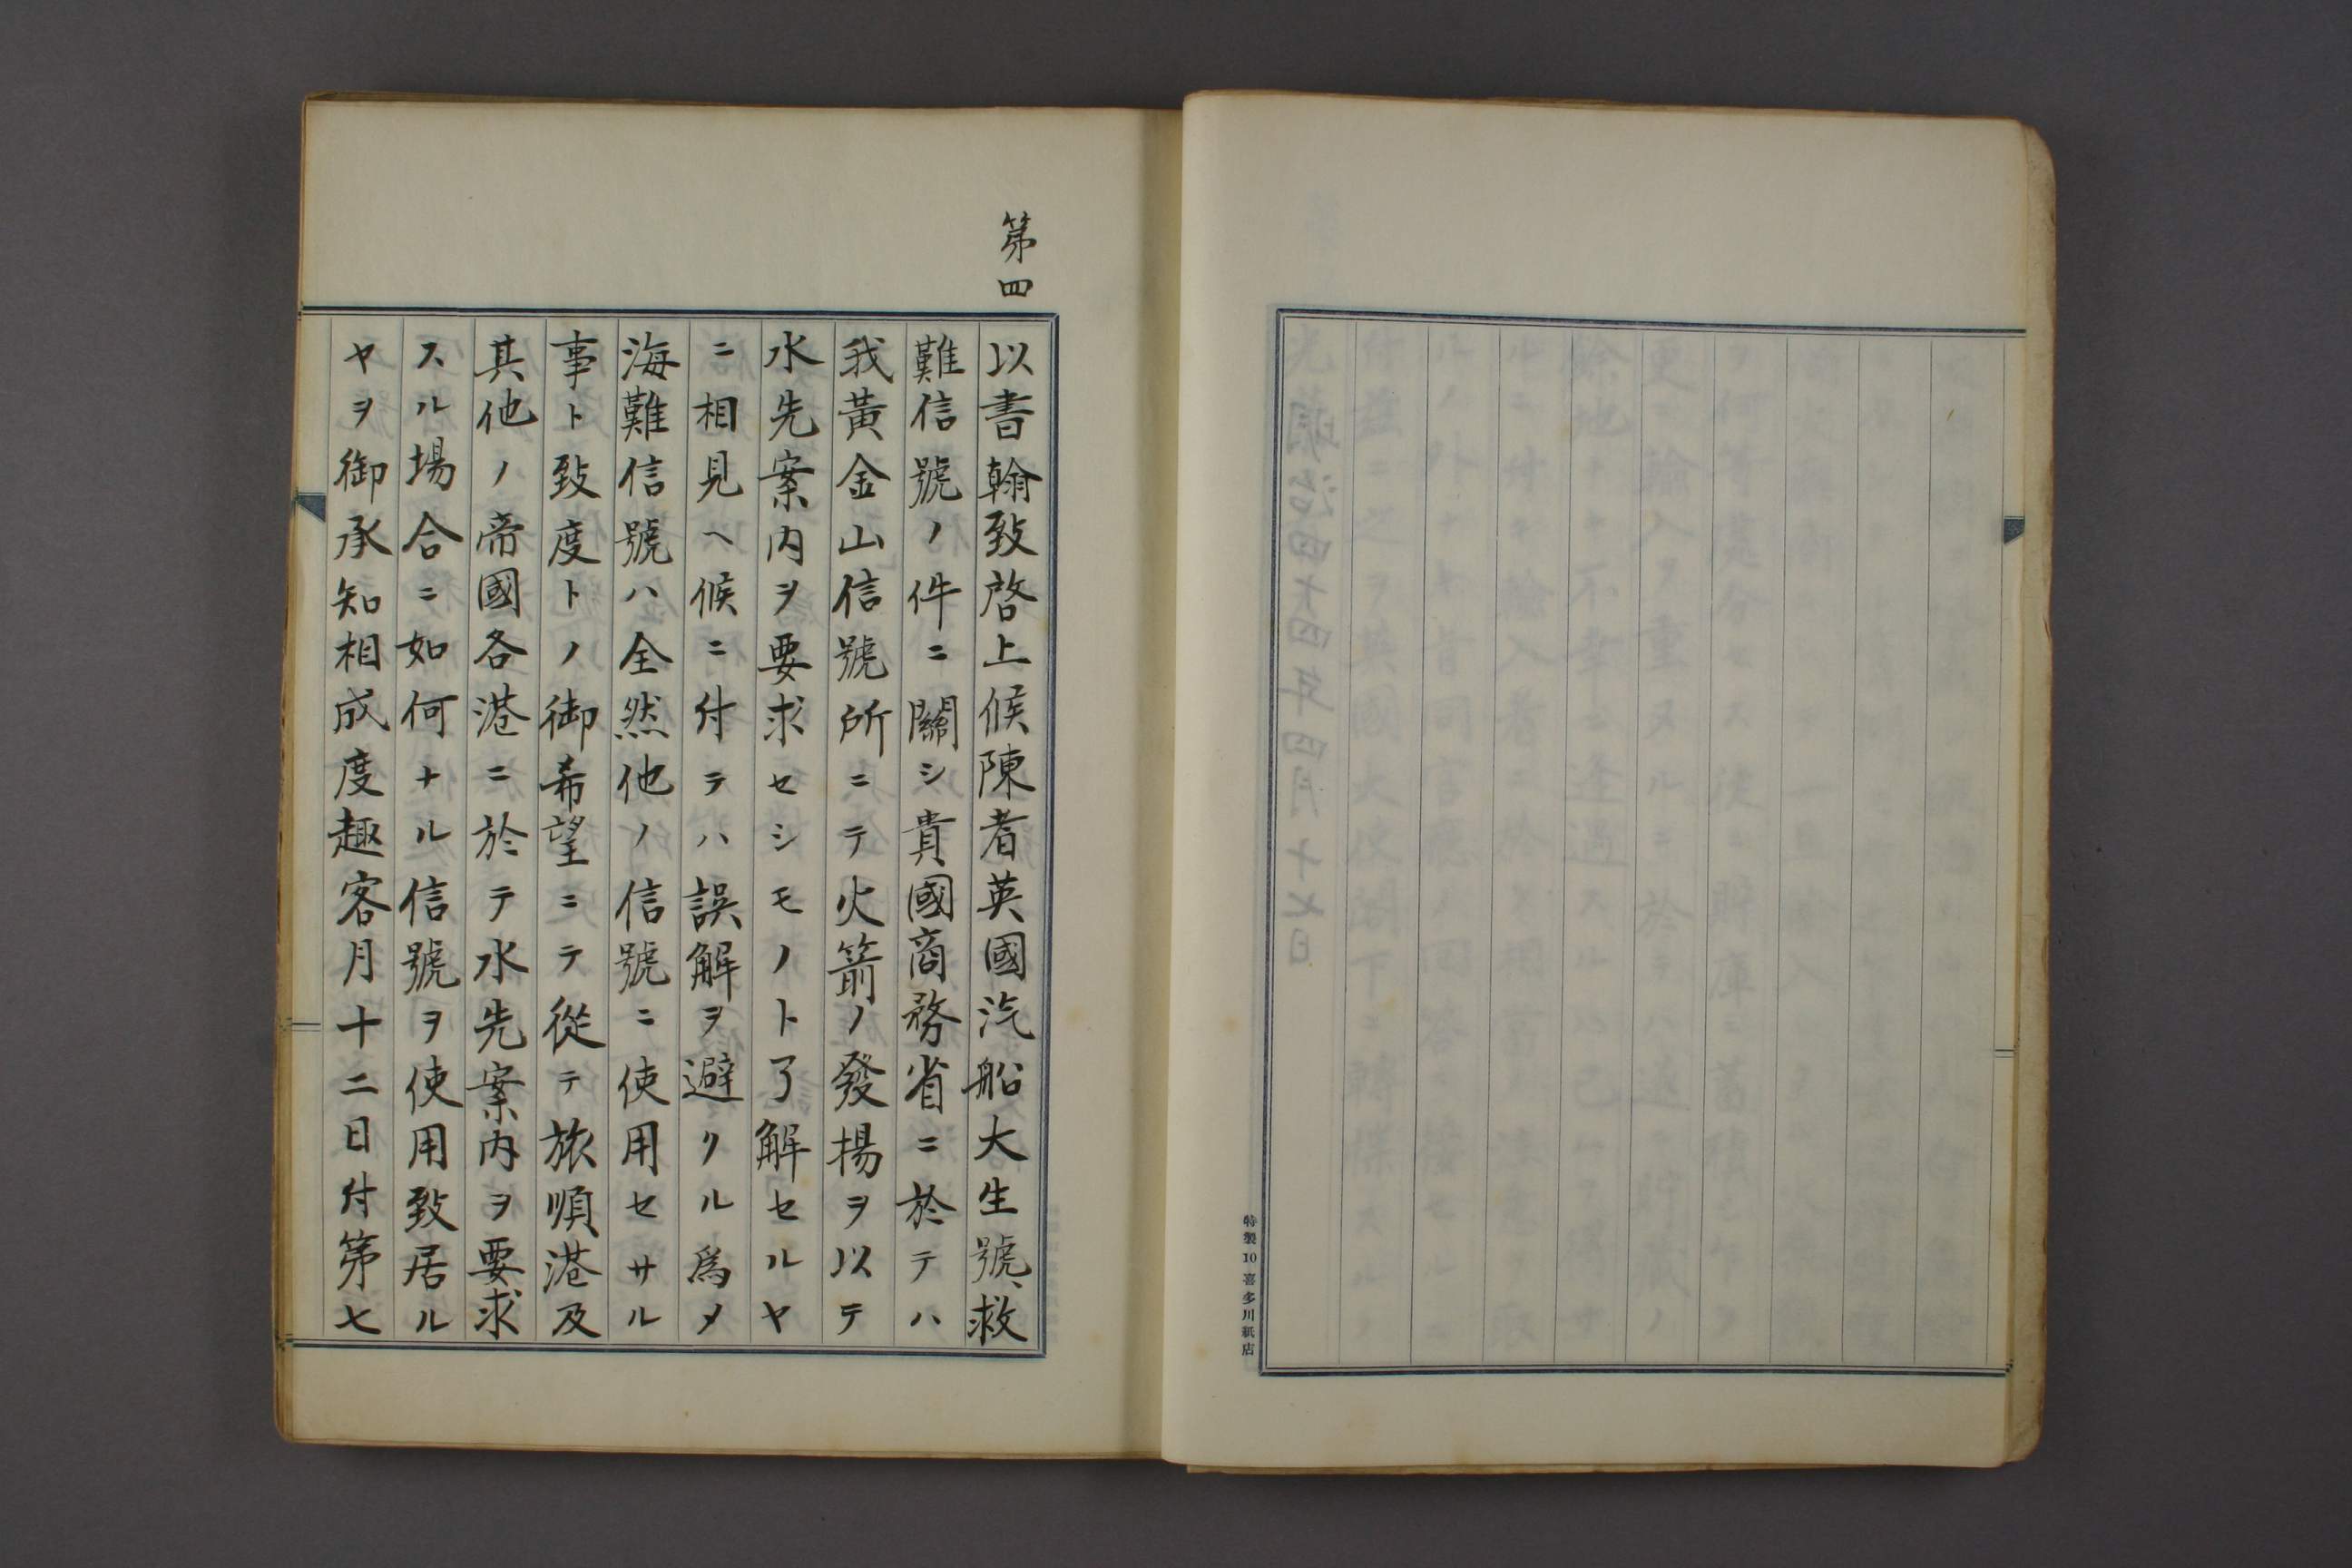 特製10 喜多川紙店
第四
以書翰致啓上候陳者英國汽船大生號、救
難信號ノ件ニ關シ貴國商務省ニ於テハ
我黃金山信號所ニテ火箭ノ發揚ヲ以テ
水先案内ヲ要求セシモノト了解セルヤ
ニ相見ヘ候ニ付テハ誤解ヲ避クル爲メ
海難信號ハ全然他ノ信號ニ使用セサル
事ト致度トノ御希望ニテ從テ旅順港及
其他ノ帝國各港ニ於テ水先案内ヲ要求
スル場合ニ如何ナル信號ヲ使用致居ル
ヤヲ御承知相成度趣客月十二日付第七